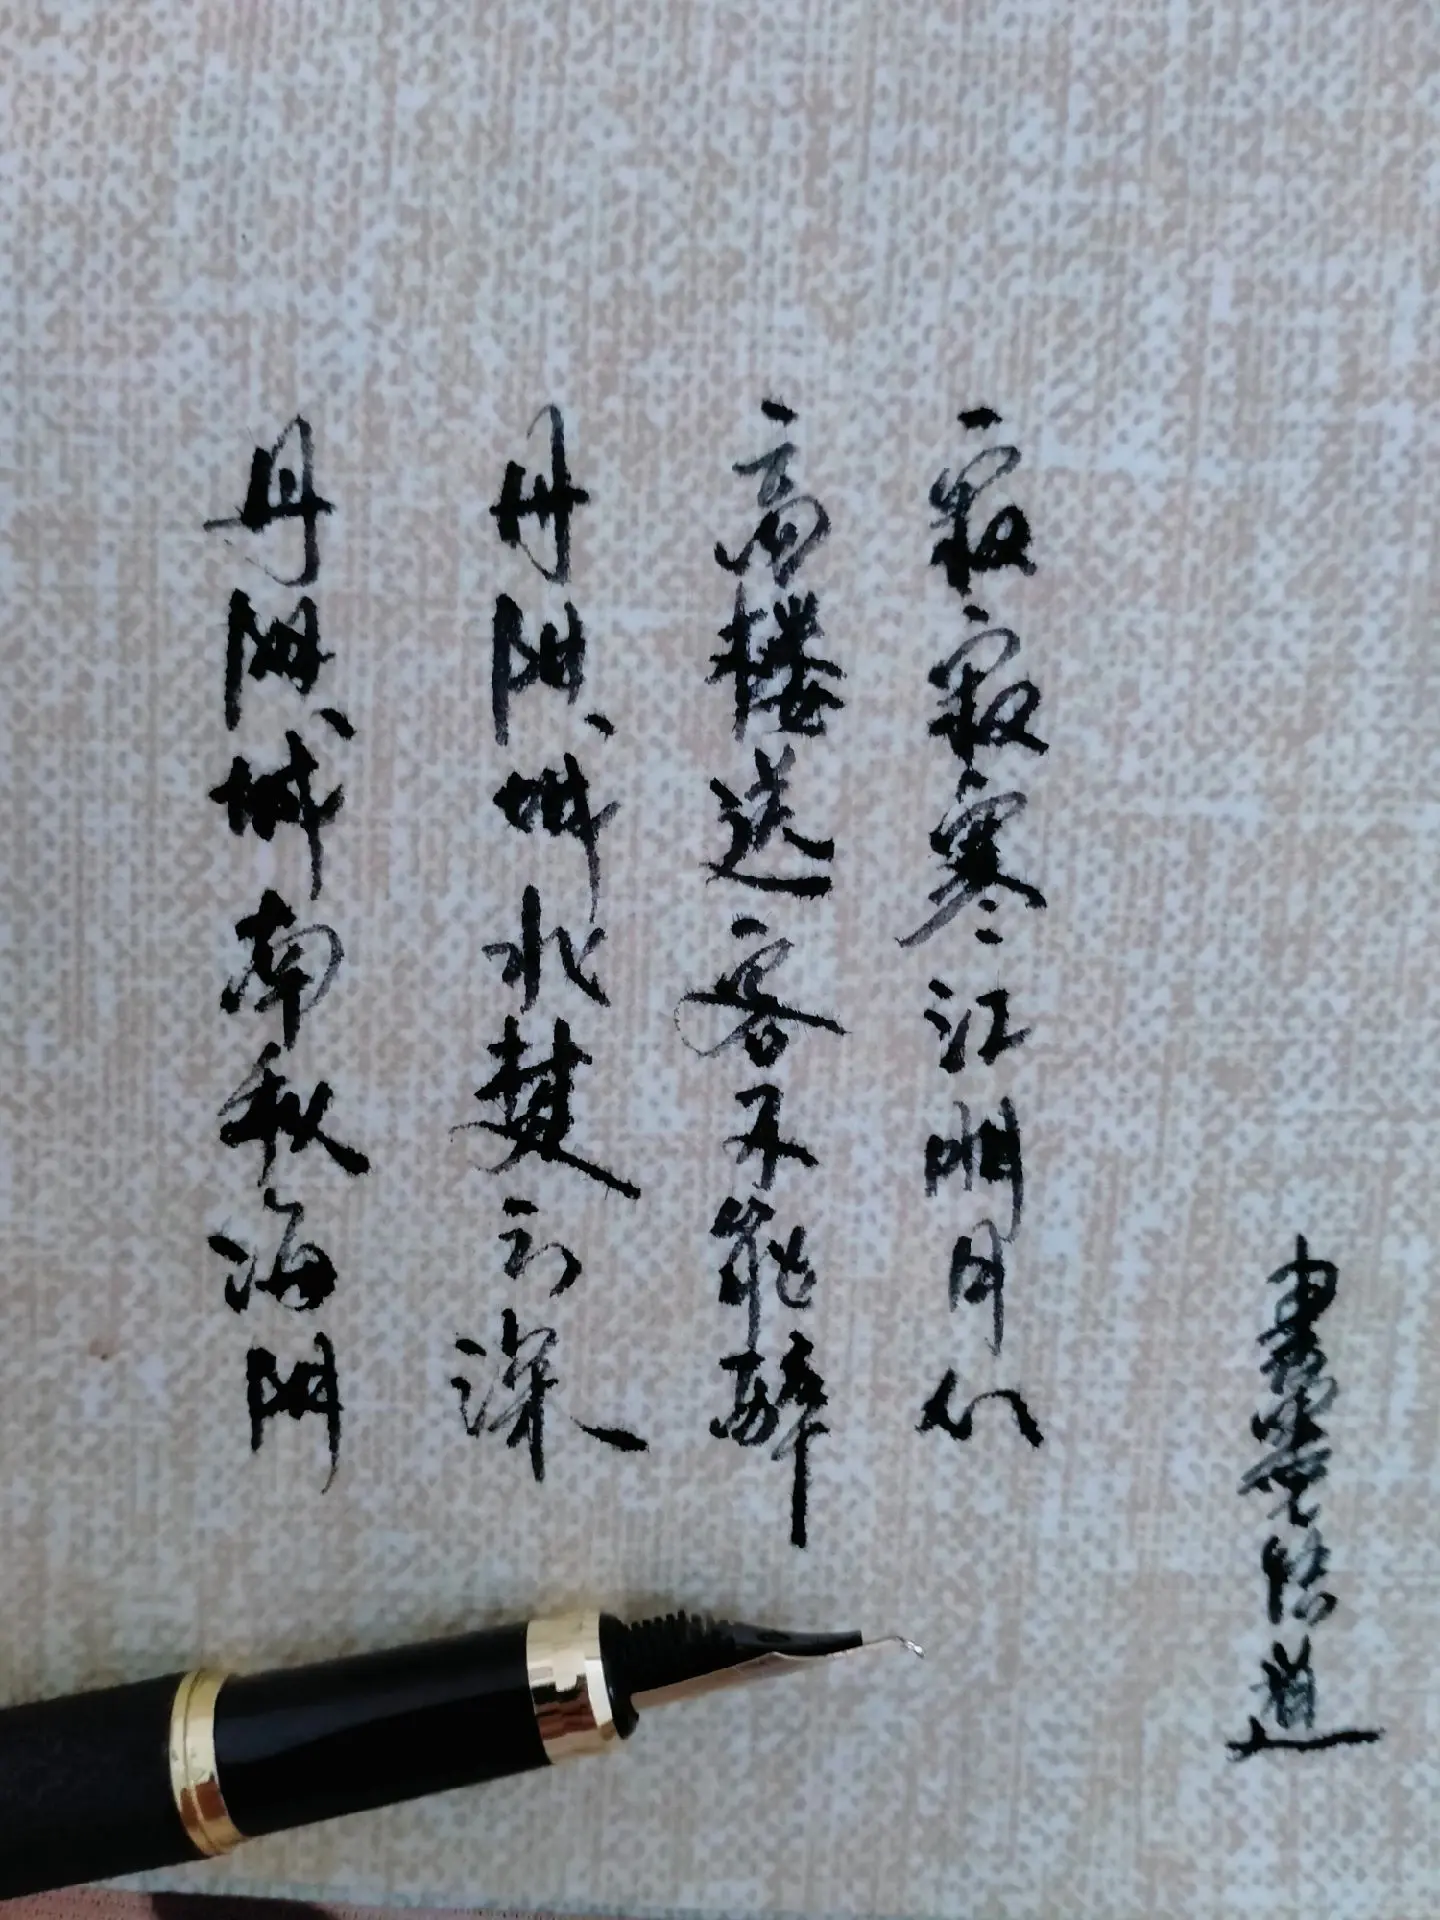 丹阳城南秋海阴
丹阳城北楚云深
高楼送客不能醉
寂寂寒江明月心
書墨悟道